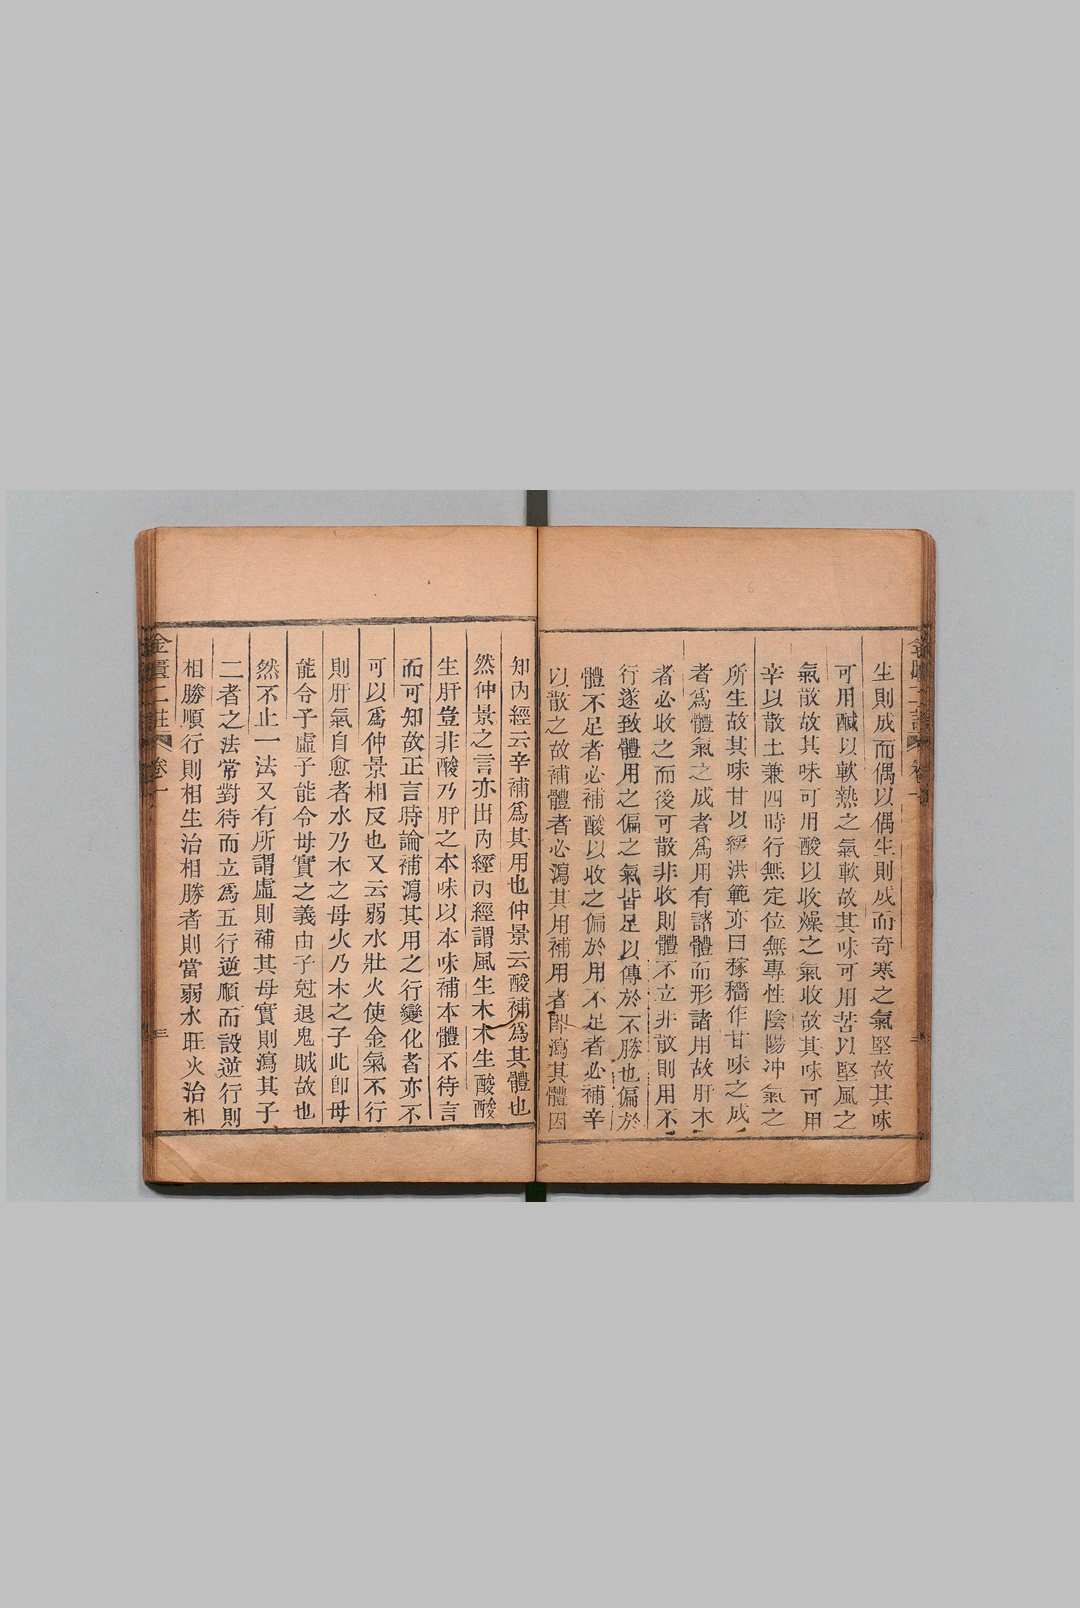 生則成而偶以偶生則成而奇寒之氣堅故其味
可用醎以軟熱之氣軟故其味可用苦以堅風之
氣散故其味可用酸以收燥之氣收故其味可用
辛以散土兼四時行無定位無專性陰陽冲氣之
所生故其味甘以緩洪範亦曰稼穡作甘味之成
者爲體氣之成者爲用有諸體而形諸用故肝木
者必收之而後可散非收則體不立非散則用不
行遂致體用之偏之氣皆足以傳於不勝也偏於
體不足者必補酸以收之偏於用不足者必補辛
以散之故補體者必瀉其用補用者卽瀉其體因
知內經云辛補爲其用也仲景云酸補爲其體也
然仲景之言亦出內經內經謂風生木木生酸酸
生肝豈非酸乃肝之本味以本味補本體不待言
而可知故正言時論補瀉其用之行變化者亦不
可以爲仲景相反也又云弱水壯火使金氣不行
則肝氣自愈者水乃木之母火乃木之子此卽母
能令子虛子能令母實之義由子尅退鬼賊故也
然不止一法又有所謂虛則補其母實則瀉其子
二者之法常對待而立爲五行逆順而設逆行則
相勝順行則相生治相勝者則當弱水旺火治相
金匱二註
卷一
三